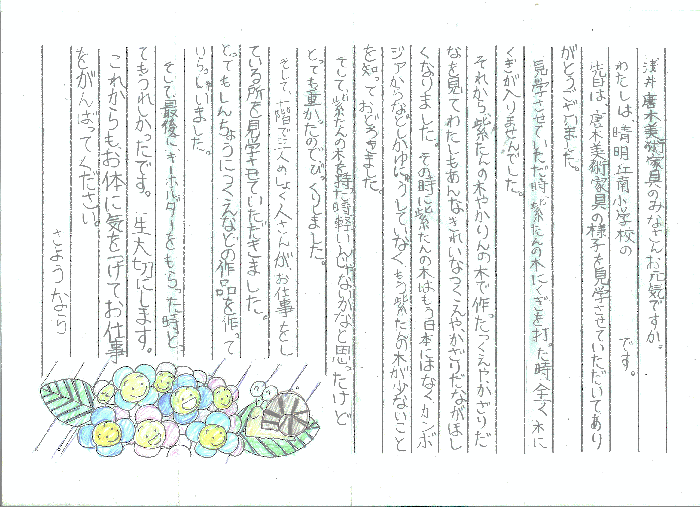 浅井唐木美術家具のみなさんお元気ですか。
わたしは、晴明丘南小学校の　　　です。
先日は、唐木美術家具の様子を見学させていただいてあり
がとうございました。
見学させていただいた時、紫たんの木にくぎを打った時、全く木に
くぎが入りませんでした。
それから、紫たんの木やかりんの木で作ったつくえやかざりだ
なを見てわたしもあんなきれいなつくえや、かざりだながほし
くなりました。その時に紫たんの木はもう日本にはなくカンボ
ジアからなどしかゆにゅうしていなく、もう紫たんの木が少ないこと
を知っておどろきました。
そして、紫たんの木を持った時、軽いんじゃないかなと思ったけど
とっても重かったのでびっくりしました。
そして、一階で三人のしょく人さんが、お仕事をし
ている所を見学させていただきました。
とってもしんちょうにつくえなどの作品を作って
いらっしゃいました。
そして、最後にキーホルダーをもらった時、と
てもうれしかったです。一生大切にします。
これからも、お体に気をつけて、お仕事
をがんばってください。
さようなら